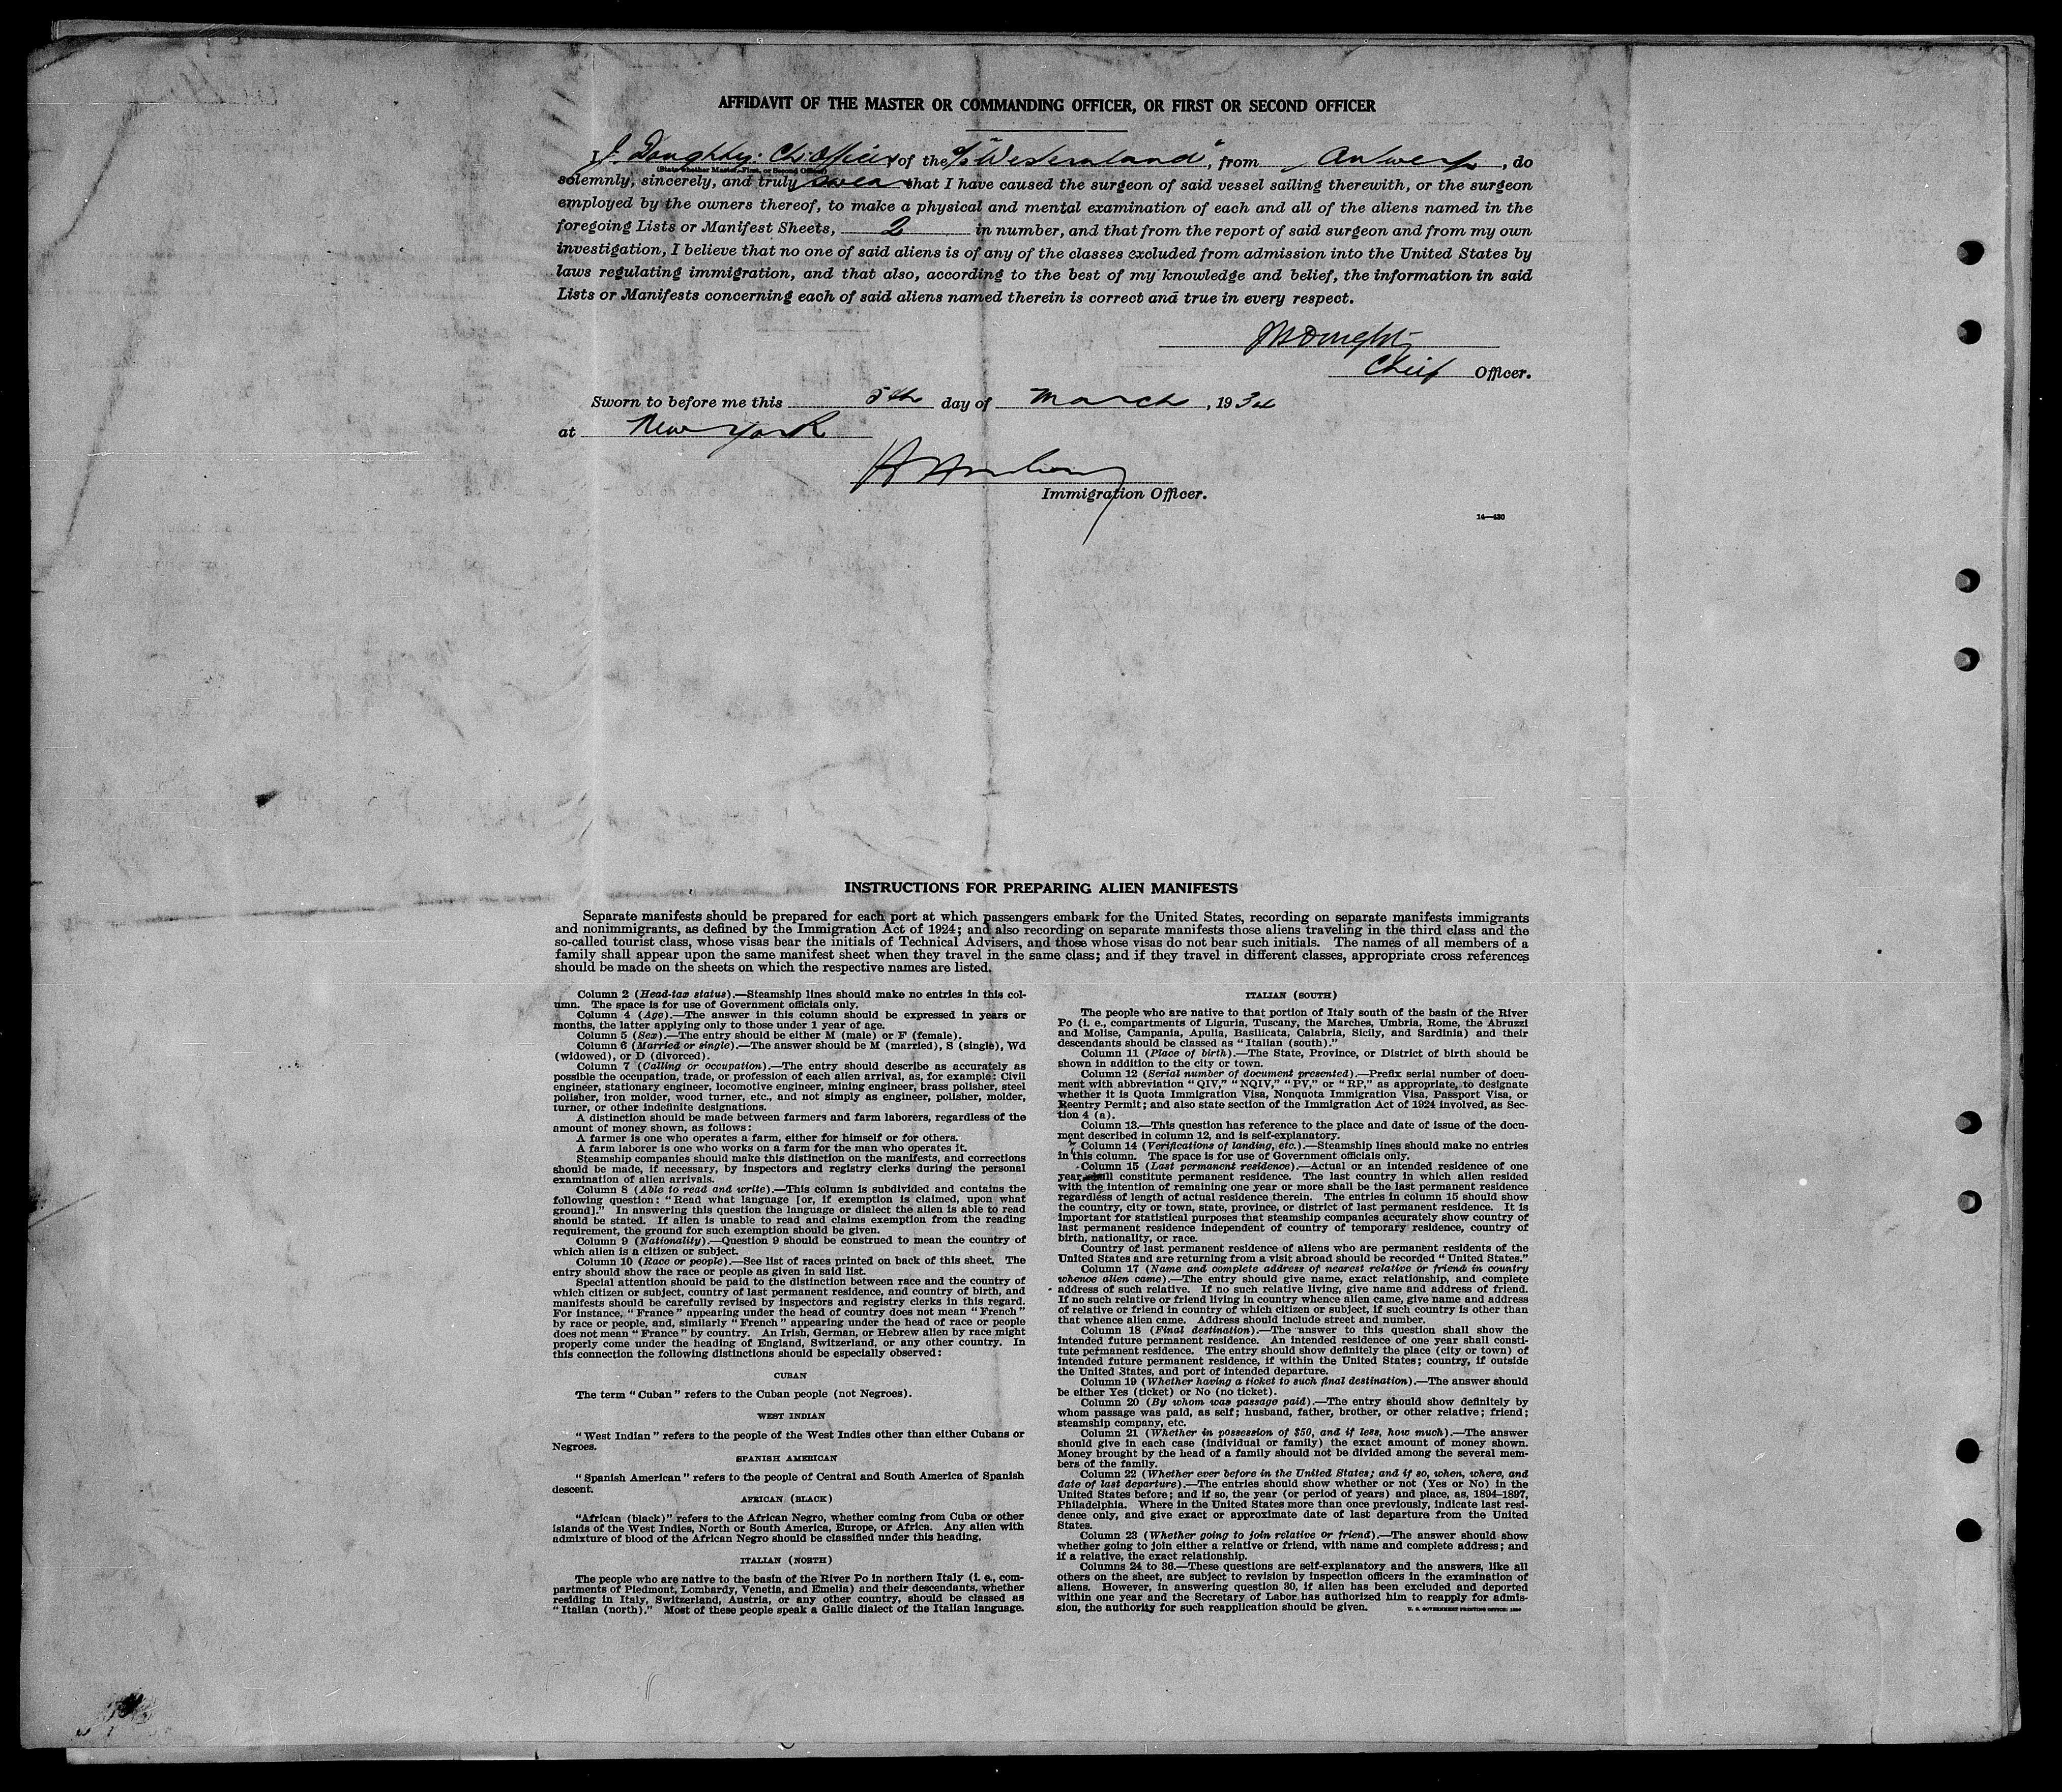 AFFIDAVIT OF THE MASTER OR COMMANDING OFFICER, OR FIRST OR SECOND OFFICER
I, J. Doughty. Ch: Officer of the s/s "Westernland", from Antwerp, do
(State whether Master, First, or Second Officer)
solemnly, sincerely, and truly swear that I have caused the surgeon of said vessel sailing therewith, or the surgeon
employed by the owners thereof, to make a physical and mental examination of each and all of the aliens named in the
foregoing Lists or Manifest Sheets, 2 in number, and that from the report of said surgeon and from my own
investigation, I believe that no one of said aliens is of any of the classes excluded from admission into the United States by
laws regulating immigration, and that also, according to the best of my knowledge and belief, the information in said
Lists or Manifests concerning each of said aliens named therein is correct and true in every respect.
Chief Officer.
Sworn to before me this 5th day of March, 1934
at New York
Immigration Officer.
14—430
INSTRUCTIONS FOR PREPARING ALIEN MANIFESTS
Separate manifests should be prepared for each port at which passengers embark for the United States, recording on separate manifests immigrants
and nonimmigrants, as defined by the Immigration Act of 1924; and also recording on separate manifests those aliens traveling in the third class and the
so-called tourist class, whose visas bear the initials of Technical Advisers, and those whose visas do not bear such initials. The names of all members of a
family shall appear upon the same manifest sheet when they travel in the same class; and if they travel in different classes, appropriate cross references
should be made on the sheets on which the respective names are listed.
Column 2 (Head-tax status).—Steamship lines should make no entries in this col-
umn. The space is for use of Government officials only.
Column 4 (Age).—The answer in this column should be expressed in years or
months, the latter applying only to those under 1 year of age.
Column 5 (Sex).—The entry should be either M (male) or F (female).
Column 6 (Married or single).—The answer should be M (married), S (single), Wd
(widowed), or D (divorced).
Column 7 (Calling or occupation).—The entry should describe as accurately as
possible the occupation, trade, or profession of each alien arrival, as, for example: Civil
engineer, stationary engineer, locomotive engineer, mining engineer, brass polisher, steel
polisher, iron molder, wood turner, etc., and not simply as engineer, polisher, molder,
turner, or other indefinite designations.
A distinction should be made between farmers and farm laborers, regardless of the
amount of money shown, as follows:
A farmer is one who operates a farm, either for himself or for others.
A farm laborer is one who works on a farm for the man who operates it.
Steamship companies should make this distinction on the manifests, and corrections
should be made, if necessary, by inspectors and registry clerks during the personal
examination of alien arrivals.
Column 8 (Able to read and write).—This column is subdivided and contains the
following question: "Read what language [or, if exemption is claimed, upon what
ground]." In answering this question the language or dialect the alien is able to read
should be stated. If alien is unable to read and claims exemption from the reading
requirement, the ground for such exemption should be given.
Column 9 (Nationality).—Question 9 should be construed to mean the country of
which alien is a citizen or subject.
Column 10 (Race or people).—See list of races printed on back of this sheet. The
entry should show the race or people as given in said list.
Special attention should be paid to the distinction between race and the country of
which citizen or subject, country of last permanent residence, and country of birth, and
manifests should be carefully revised by inspectors and registry clerks in this regard.
For instance, "France" appearing under the head of country does not mean "French"
by race or people, and, similarly "French" appearing under the head of race or people
does not mean "France" by country. An Irish, German, or Hebrew alien by race might
properly come under the heading of England, Switzerland, or any other country. In
this connection the following distinctions should be especially observed:
CUBAN
The term "Cuban" refers to the Cuban people (not Negroes).
WEST INDIAN
"West Indian" refers to the people of the West Indies other than either Cubans or
Negroes.
SPANISH AMERICAN
"Spanish American" refers to the people of Central and South America of Spanish
descent.
AFRICAN (BLACK)
"African (black)" refers to the African Negro, whether coming from Cuba or other
islands of the West Indies, North or South America, Europe, or Africa. Any alien with
admixture of blood of the African Negro should be classified under this heading.
ITALIAN (NORTH)
The people who are native to the basin of the River Po in northern Italy (i. e., com-
partments of Piedmont, Lombardy, Venetia, and Emelia) and their descendants, whether
residing in Italy, Switzerland, Austria, or any other country, should be classed as
"Italian (north)." Most of these people speak a Gallic dialect of the Italian language.
ITALIAN (SOUTH)
The people who are native to that portion of Italy south of the basin of the River
Po (i. e., compartments of Liguria, Tuscany, the Marches, Umbria, Rome, the Abruzzi
and Molise, Campania, Apulia, Basilicata, Calabria, Sicily, and Sardinia) and their
descendants should be classed as "Italian (south)."
Column 11 (Place of birth).—The State, Province, or District of birth should be
shown in addition to the city or town.
Column 12 (Serial number of document presented).—Prefix serial number of docu-
ment with abbreviation "QIV," "NQIV," "PV," or "RP," as appropriate, to designate
whether it is Quota Immigration Visa, Nonquota Immigration Visa, Passport Visa, or
Reentry Permit; and also state section of the Immigration Act of 1924 involved, as Sec-
tion 4 (a).
Column 13.—This question has reference to the place and date of issue of the docu-
ment described in column 12, and is self-explanatory.
Column 14 (Verifications of landing, etc.).—Steamship lines should make no entries
in this column. The space is for use of Government officials only.
Column 15 (Last permanent residence).—Actual or an intended residence of one
year shall constitute permanent residence. The last country in which alien resided
with the intention of remaining one year or more shall be the last permanent residence
regardless of length of actual residence therein. The entries in column 15 should show
the country, city or town, state, province, or district of last permanent residence. It is
important for statistical purposes that steamship companies accurately show country of
last permanent residence independent of country of temporary residence, country of
birth, nationality, or race.
Country of last permanent residence of aliens who are permanent residents of the
United States and are returning from a visit abroad should be recorded "United States."
Column 17 (Name and complete address of nearest relative or friend in country
whence alien came).—The entry should give name, exact relationship, and complete
address of such relative. If no such relative living, give name and address of friend.
If no such relative or friend living in country whence alien came, give name and address
of relative or friend in country of which citizen or subject, if such country is other than
that whence alien came. Address should include street and number.
Column 18 (Final destination).—The answer to this question shall show the
intended future permanent residence. An intended residence of one year shall consti-
tute permanent residence. The entry should show definitely the place (city or town) of
intended future permanent residence, if within the United States; country, if outside
the United States, and port of intended departure.
Column 19 (Whether having a ticket to such final destination).—The answer should
be either Yes (ticket) or No (no ticket).
Column 20 (By whom was passage paid).—The entry should show definitely by
whom passage was paid, as self; husband, father, brother, or other relative; friend;
steamship company, etc.
Column 21 (Whether in possession of $50, and if less, how much).—The answer
should give in each case (individual or family) the exact amount of money shown.
Money brought by the head of a family should not be divided among the several mem-
bers of the family.
Column 22 (Whether ever before in the United States; and if so, when, where, and
date of last departure).—The entries should show whether or not (Yes or No) in the
United States before; and if so, the year (or period of years) and place, as, 1894–1897,
Philadelphia. Where in the United States more than once previously, indicate last resi-
dence only, and give exact or approximate date of last departure from the United
States.
Column 23 (Whether going to join relative or friend).—The answer should show
whether going to join either a relative or friend, with name and complete address; and
if a relative, the exact relationship.
Columns 24 to 36.—These questions are self-explanatory and the answers, like all
others on the sheet, are subject to revision by inspection officers in the examination of
aliens. However, in answering question 30, if alien has been excluded and deported
within one year and the Secretary of Labor has authorized him to reapply for admis-
sion, the authority for such reapplication should be given.
U. S. GOVERNMENT PRINTING OFFICE